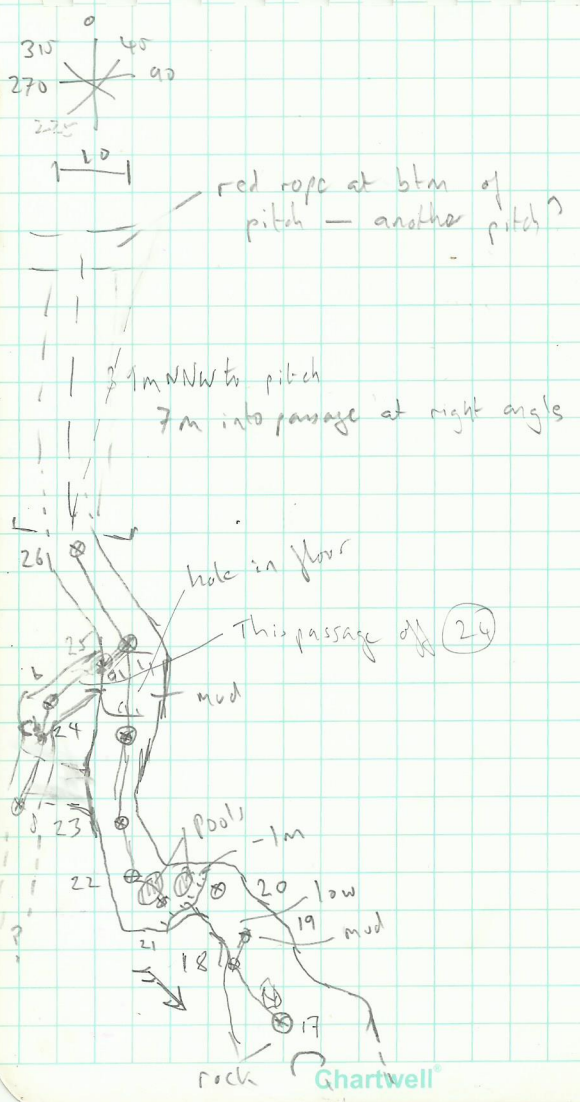 0
315 45
270 90
225
10
red rope at btm of
pitch — another pitch?
1m NNW to pitch
7m into passage at right angle
26
hole in floor
25
This passage off 24
a
b
mud
c
24
d
23
pools
-1m
22
20
low
19
mud
21
18
17
?
rock
Chartwell®